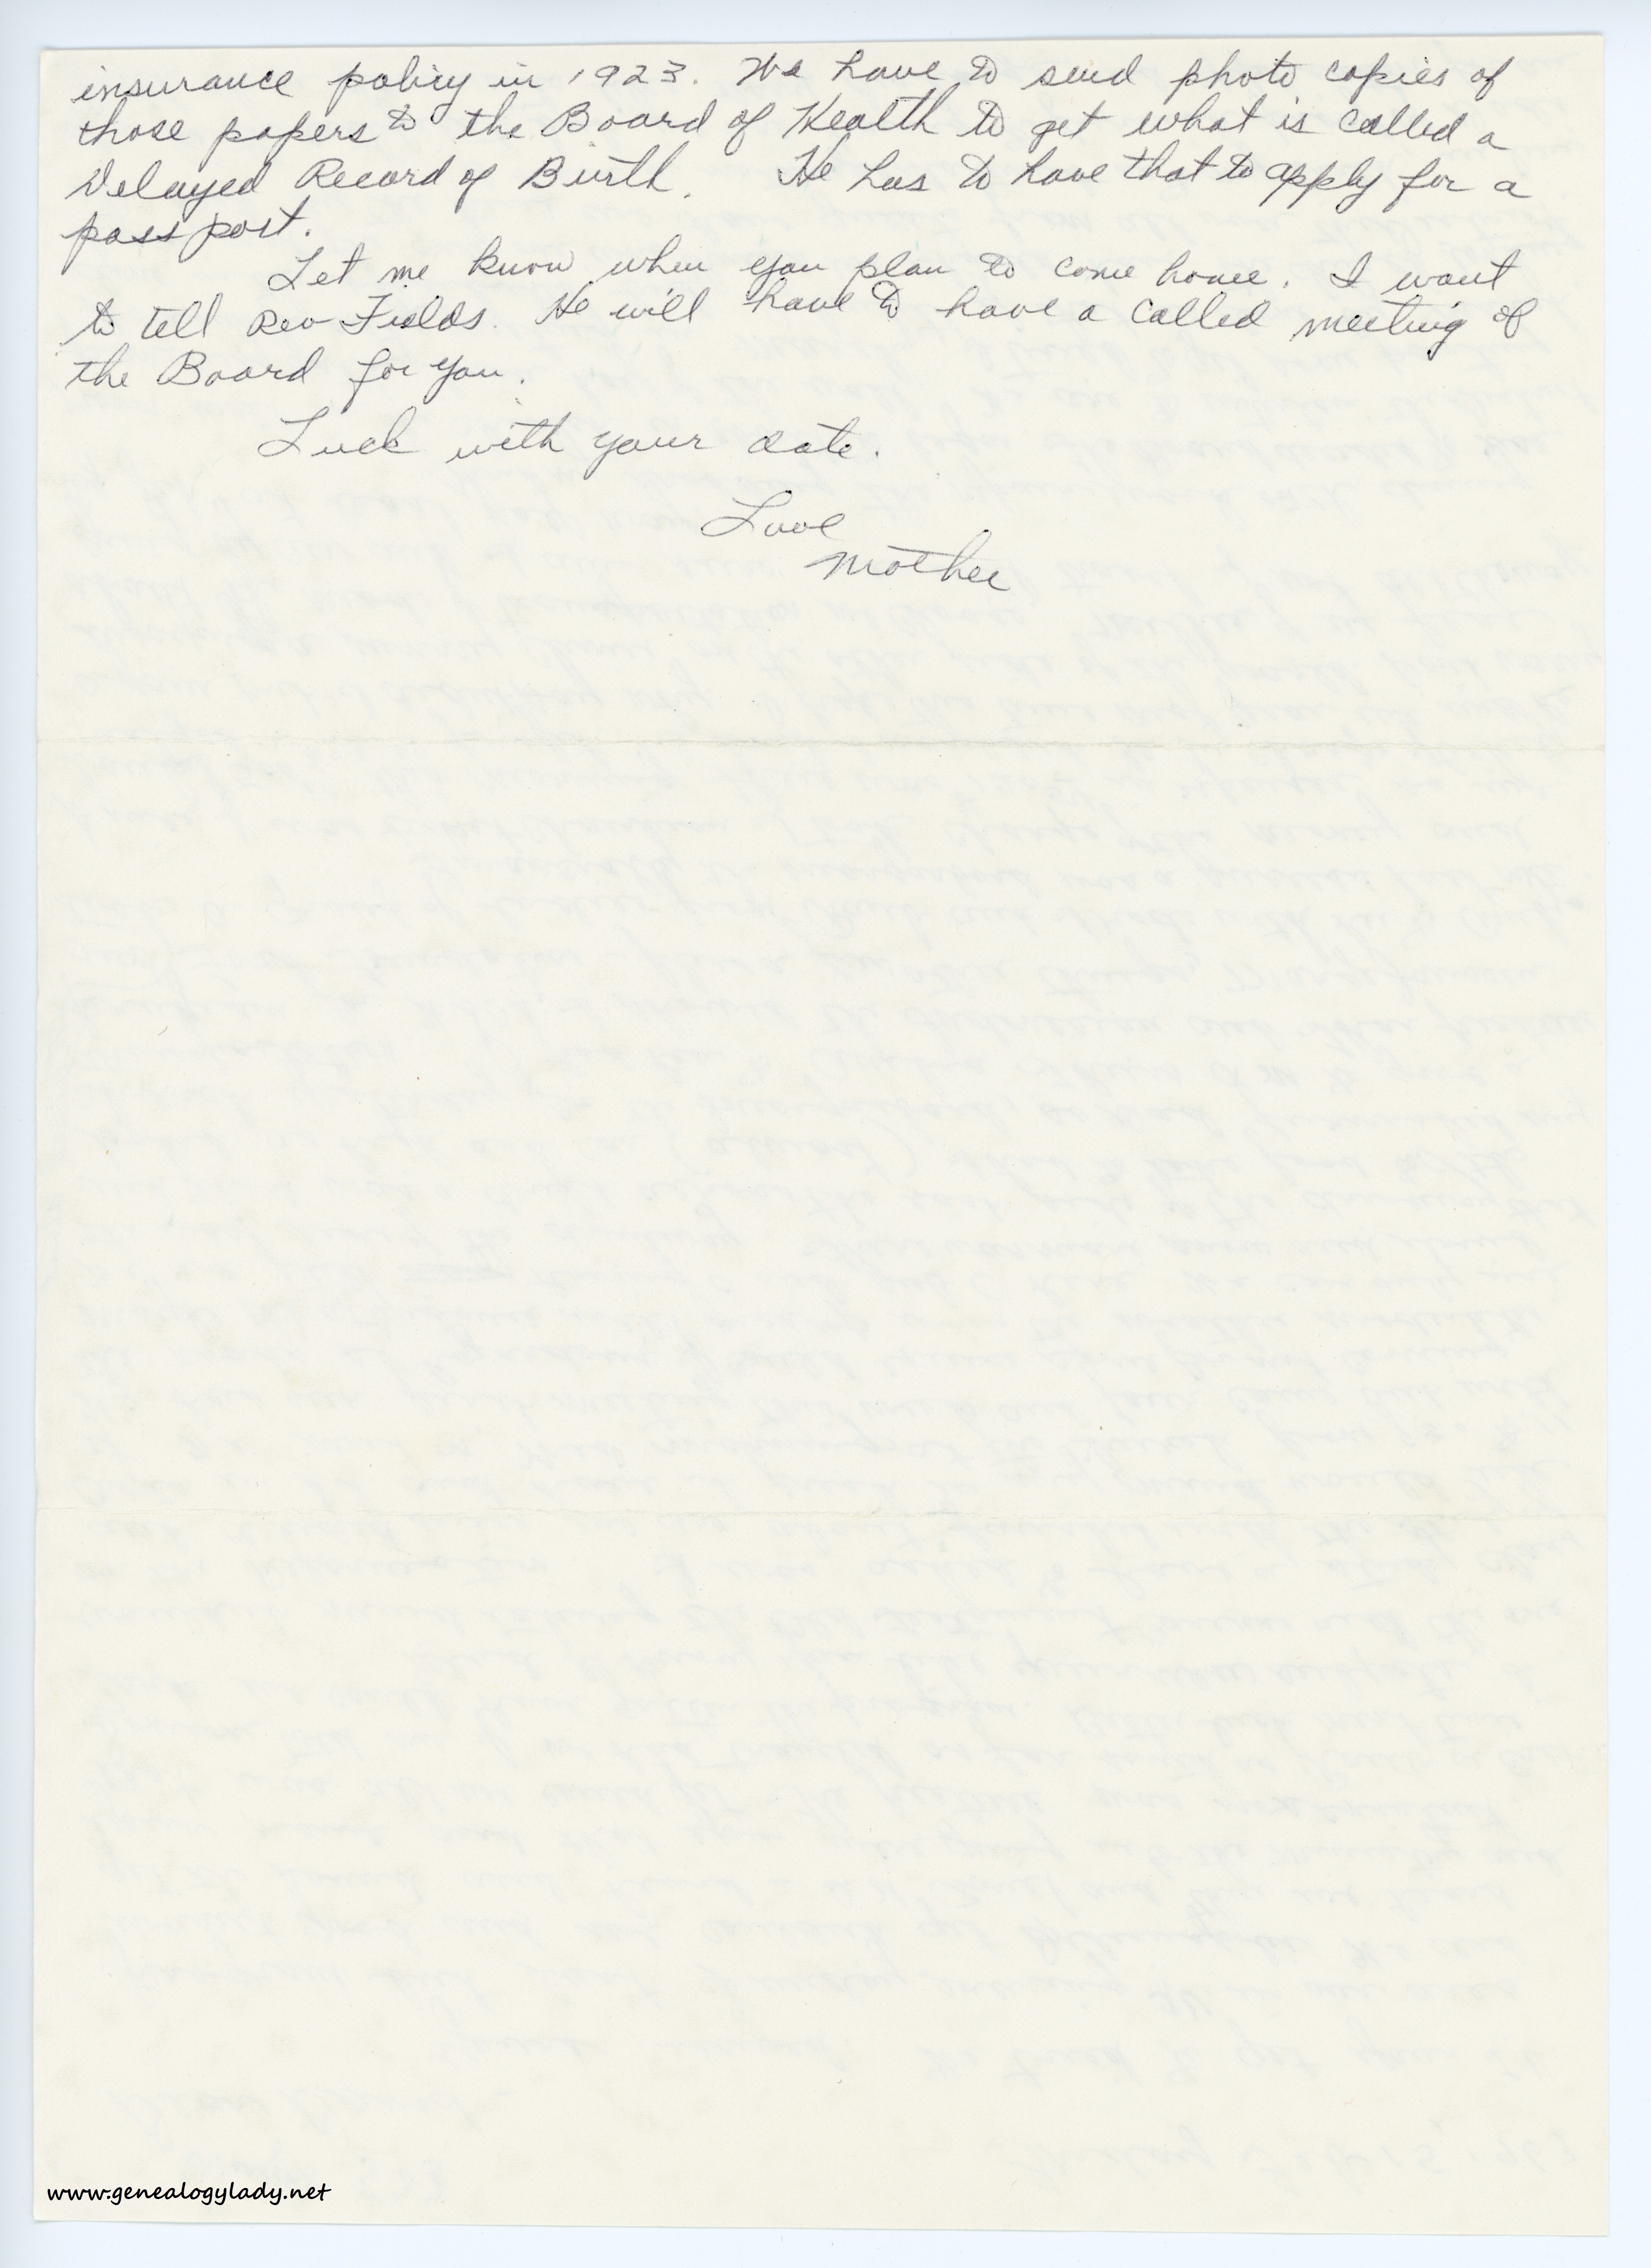 insurance policy in 1923. We have to send photo copies of
those papers to the Board of Health to get what is called a
Delayed Record of Birth. He has to have that to apply for a
pass port.
Let me know when you plan to come home. I want
to tell Rev Fields. He will have to have a called meeting of
the Board for you.
Luck with your date.
Love
Mother
www.genealogylady.net